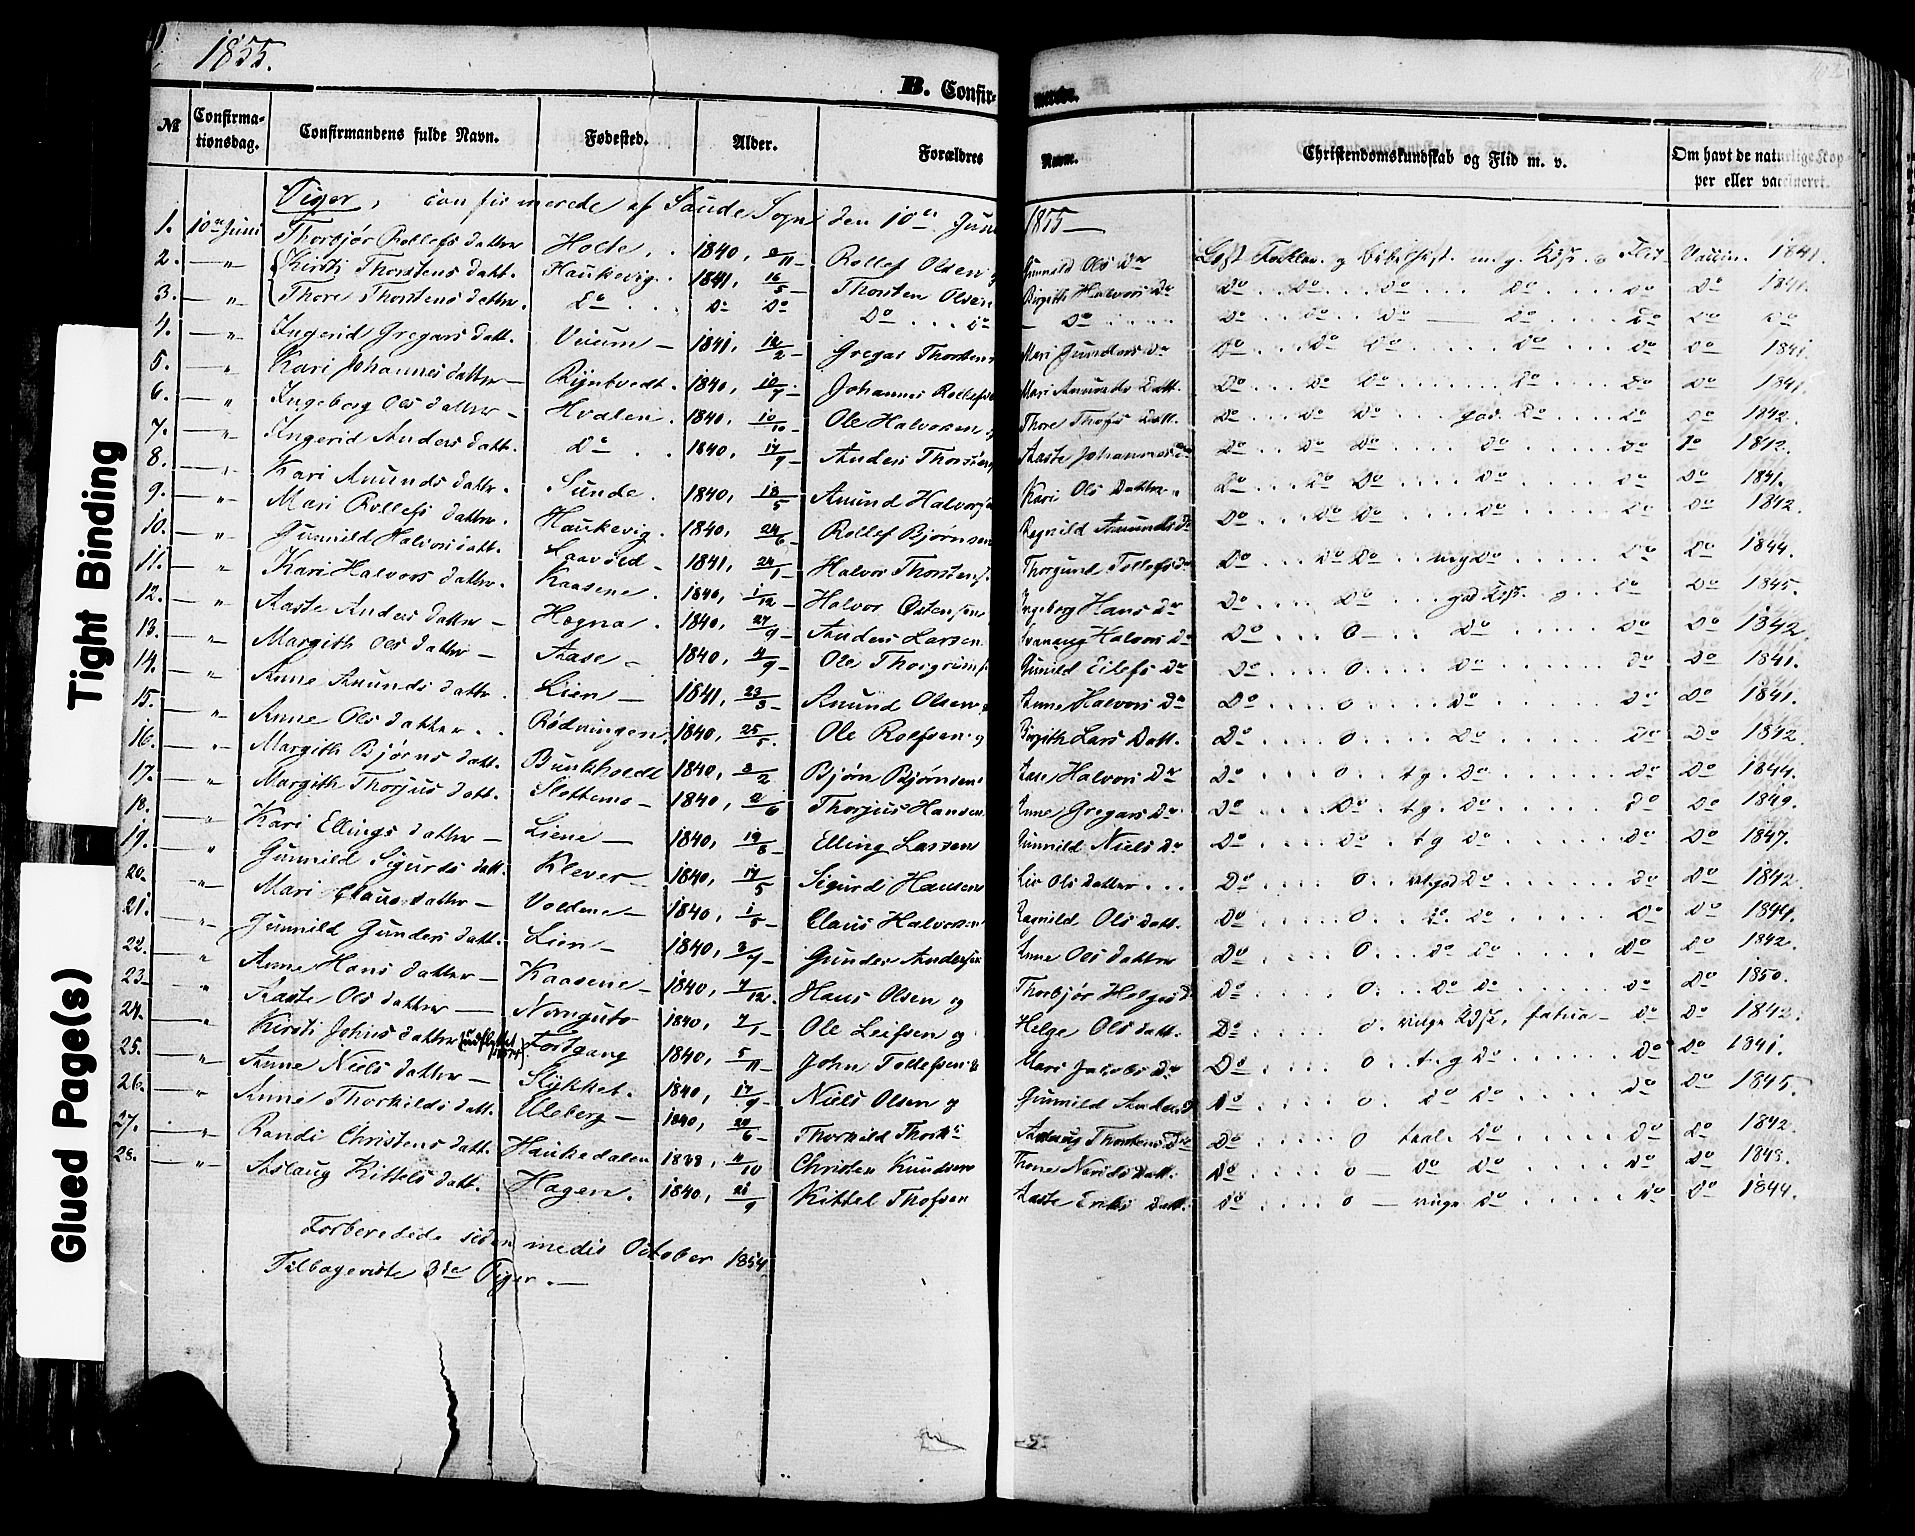 1855.
B. Confir- merede.
№ Confirma-tionsdag. Confirmandens fulde Navn. Fødested. Alder. Forældres Navn. Christendomskundskab og Flid m. v. Om havt de naturlige Kopper eller vaccineret.
Piger, confirmerede af Saude Sogn den 10de Juni 1855 —
1. 10de Juni Thorbjør Rollefsdatter Holte 1840, Rollef Olsen og Gunnild Ols Dr Vaccin. 1841.
2. — " Kirsti Thorstens datt. Haukevig. 1841, 16/5 Thorsten Olsen Birgith Halvors Dr Do Do Do Do Do Do 1841.
3. — " Thore Thorstens datter. Do Do Do Do Do Do Do Do Do Do Do Do Do
4. — " Ingerid Gregars datt. 1841, Gregar Thorstens Mari Gunders Dr Do Do Do Do Do Do 1841.
5. — " Kari Johannesdatter — Ryntvedt. 1840, Johannes Rollefsen Mari Anunds Datt. Do Do Do Do Do Do 1841.
6. — " Ingeborg Olsdatter — Hvalen. 1840, 10/10 Ole Halvorsen og Thore Thofs Datt. Do Do Do god Do Do Do 1842.
7. — " Ingerid Anders datt. Do 1840, 14/9 Anders Thorstens Aaste Johannes Dr Do Do Do Do Do Do 1842.
8. — " Kari Anunds datter. Sunde. 1840, 18/5 Anund Halvorsen Kari Ols Datter Do Do Do Do Do Do 1841.
9. — " Mari Rollefs datter. Haukevig. 1840, 24/6 Rollef Bjørnsen Regnild Anunds Dr Do Do Do Do Do Do 1842.
10. — " Gunnild Halvors datt. 1841, 24/1 Halvor Thorstens. Thorgund Tollefs Dr Do Do Do mg Do Do Do 1844.
11. — " Kari Halvors datter. Kaasene. 1840, 1/12 Halvor Østensen Ingeborg Hans Dr Do Do god Do Do 1845.
12. — " Aaste Anders datter — Høgna. 1840, 27/9 Anders Larsen Halvors Dr Do o Do Do Do 1842.
13. — " Margith Ols datter — Aase — 1840, 4/9 Ole Thorgrims. Gunild Eilefs Dr Do o Do Do Do 1841.
14. — " Anne Anunds datter. Lien — 1841, 23/3 Anund Olsen Anne Halvors Dr Do o Do Do Do 1841.
15. — " Anne Ols datter. Rødningen 1840, 25/5. Ole Rolfsen og Birgith Lars Datt. Do o Do Do Do 1842.
16. — " Margith Bjørns datt. Bunkholdt 1840, 3/2 Bjørn Bjørnsen Aase Halvors Dr Do o tg. Do Do Do 1844.
17. — " Margith Thorjus datt. Slottemo — 1840, 2/6 Thorjus Hansen Anne Gregars Dr Do Do tg. Do Do Do 1849.
18. — " Kari Ellings datter — Liene — 1840, 19/8 Elling Larsen Gunnild Niels Dr Do Do tg Do Do Do 1847.
19. — " Gunnild Sigurds datt. Klever — 1840, 17/5 Sigurd Hansen Liv Ols datter Do o Do Do Do 1842.
20. — " Mari Claus datter — Voldene — 1840, 1/5 Claus Halvorsen Ragnild Ols datt. Do o Do. Do Do Do 1844.
21. — " Gunnild Gunders datt. Lien — 1840, 3/9 Gunder Andersen Anne Ols datter Do o Do Do Do Do 1842.
22. — " Anne Hans datter — Kaasene — 1840, 7/12. Hans Olsen og Thorbjør Helges D. Do o Do Do Do Do 1850.
23. — " Aaste Ols datter — 1840, 7/1 Ole Leifsen og Helge Ols datt. Do o Do Do 1842.
24. — " Kirsti Johns datter (udflyttet) Fostgang 1840, 5/11 John Tollefsen Mari Jakobs Dr Do o tg Do Do Do 1841.
25. — " Anne Niels datter — Stykket. 1840, 17/9 Niels Olsen og Gunnild Anders D Do o Do Do Do Do 1845.
26. — " Anne Thorkilds datt. Uleberg — 1840, 20/6 Thorkild Thorks Aslaug Thorstens Dr Do o taal. Do Do Do 1842.
27. — " Randi Christens datt. Haukedalen 1838, 11/10 Christen Knudsen Thone Datt. Do o Do Do Do Do 1843.
28. — " Aslaug Kittels datt. Hagen. 1840, 21/9 Kittel Thofsen Aaste Eriks Datt. Do o Do Do Do 1844.
Forberedede siden medio October 1854
Tilbageviste 3de Piger. —
Tight Binding
Glued Page(s)